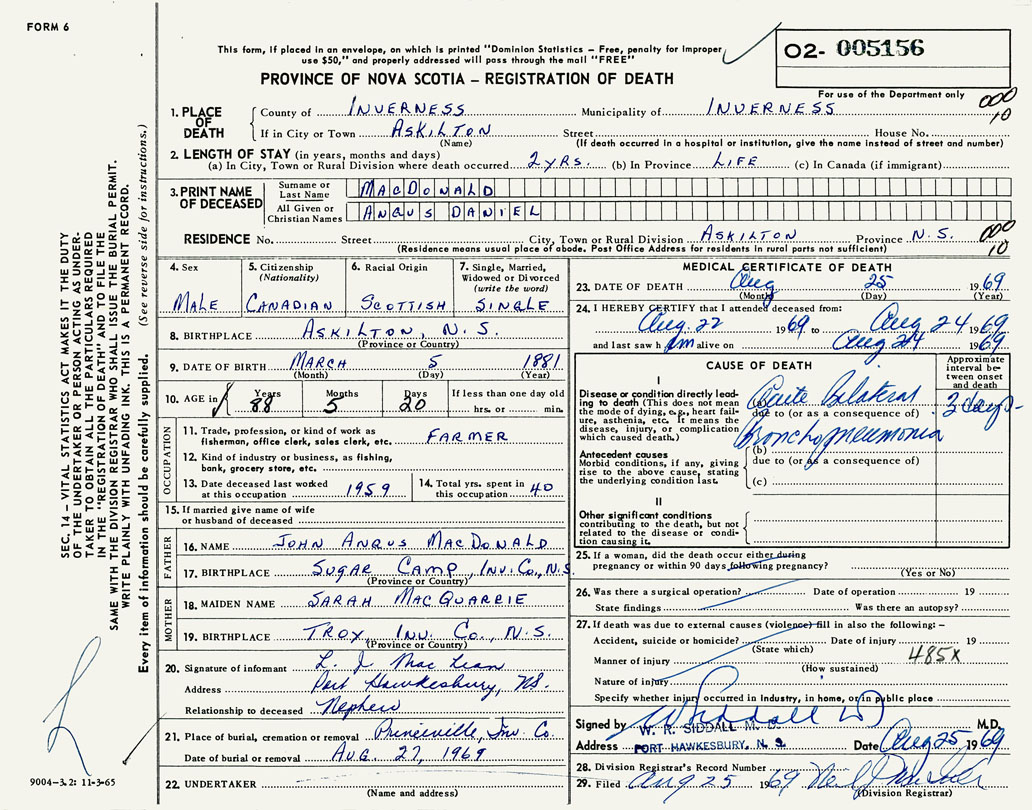 FORM 6
This form, if placed in an envelope, on which is printed "Dominion Statistics – Free, penalty for improper
use $50," and properly addressed will pass through the mail "FREE"
PROVINCE OF NOVA SCOTIA – REGISTRATION OF DEATH
02- 005156
For use of the Department only
1. PLACE OF DEATH
County of INVERNESS Municipality of INVERNESS 000
If in City or Town ASKILTON Street House No. 10
(Name) (If death occurred in a hospital or institution, give the name instead of street and number)
2. LENGTH OF STAY (in years, months and days)
(a) In City, Town or Rural Division where death occurred 2 YRS. (b) In Province LIFE (c) In Canada (if immigrant)
3. PRINT NAME OF DECEASED
Surname or Last Name MACDONALD
All Given or Christian Names ANGUS DANIEL
RESIDENCE No. Street City, Town or Rural Division ASKILTON Province N.S. 000
(Residence means usual place of abode. Post Office Address for residents in rural parts not sufficient) 10
4. Sex
MALE
5. Citizenship (Nationality)
CANADIAN
6. Racial Origin
SCOTTISH
7. Single, Married, Widowed or Divorced (write the word)
SINGLE
8. BIRTHPLACE ASKILTON, N.S.
(Province or Country)
9. DATE OF BIRTH MARCH 5 1881
(Month) (Day) (Year)
10. AGE in Years Months Days If less than one day old
88 5 20 hrs. or min.
OCCUPATION
11. Trade, profession, or kind of work as
fisherman, office clerk, sales clerk, etc. FARMER
12. Kind of industry or business, as fishing,
bank, grocery store, etc.
13. Date deceased last worked at this occupation 1959
14. Total yrs. spent in this occupation 40
15. If married give name of wife
or husband of deceased
FATHER
16. NAME JOHN ANGUS MACDONALD
17. BIRTHPLACE SUGAR CAMP, INV. CO., N.S.
(Province or Country)
MOTHER
18. MAIDEN NAME SARAH MACQUARRIE
19. BIRTHPLACE TROY INV. CO., N.S.
(Province or Country)
20. Signature of informant L. J. MacLean
Address Port Hawkesbury, NS.
Relationship to deceased Nephew
21. Place of burial, cremation or removal Princeville, Inv Co.
Date of burial or removal AUG. 27, 1969
22. UNDERTAKER
(Name and address)
MEDICAL CERTIFICATE OF DEATH
23. DATE OF DEATH Aug 25 1969
(Month) (Day) (Year)
24. I HEREBY CERTIFY that I attended deceased from:
Aug. 22 1969 to Aug 24 1969
and last saw him alive on Aug 24 1969
CAUSE OF DEATH
Approximate interval between onset and death
I
Disease or condition directly leading to death (This does not mean the mode of dying, e.g., heart failure, asthenia, etc. It means the disease, injury, or complication which caused death.)
(a) Acute Bilateral 3 days-
due to (or as a consequence of)
Bronchopneumonia
Antecedent causes
Morbid conditions, if any, giving rise to the above cause, stating the underlying condition last.
(b)
due to (or as a consequence of)
(c)
II
Other significant conditions
contributing to the death, but not related to the disease or condition causing it.
25. If a woman, did the death occur either during
pregnancy or within 90 days following pregnancy?
(Yes or No)
26. Was there a surgical operation? Date of operation 19
State findings Was there an autopsy?
27. If death was due to external causes (violence) fill in also the following: –
Accident, suicide or homicide? Date of injury 19
(State which)
Manner of injury 485X
(How sustained)
Nature of injury
Specify whether injury occurred in Industry, in home, or in public place
Signed by M.D.
W. R. SIDDALL M. D.
Address PORT HAWKESBURY, N. S. Date Aug 25 1969
28. Division Registrar's Record Number
29. Filed Aug 25 1969
(Division Registrar)
SEC. 14 – VITAL STATISTICS ACT MAKES IT THE DUTY
OF THE UNDERTAKER OR PERSON ACTING AS UNDER-
TAKER TO OBTAIN ALL THE PARTICULARS REQUIRED
IN THE "REGISTRATION OF DEATH" AND TO FILE THE
SAME WITH THE DIVISION REGISTRAR WHO SHALL ISSUE THE BURIAL PERMIT.
WRITE PLAINLY WITH UNFADING INK. THIS IS A PERMANENT RECORD.
Every item of information should be carefully supplied. (See reverse side for instructions.)
9004–3.2: 11-3-65